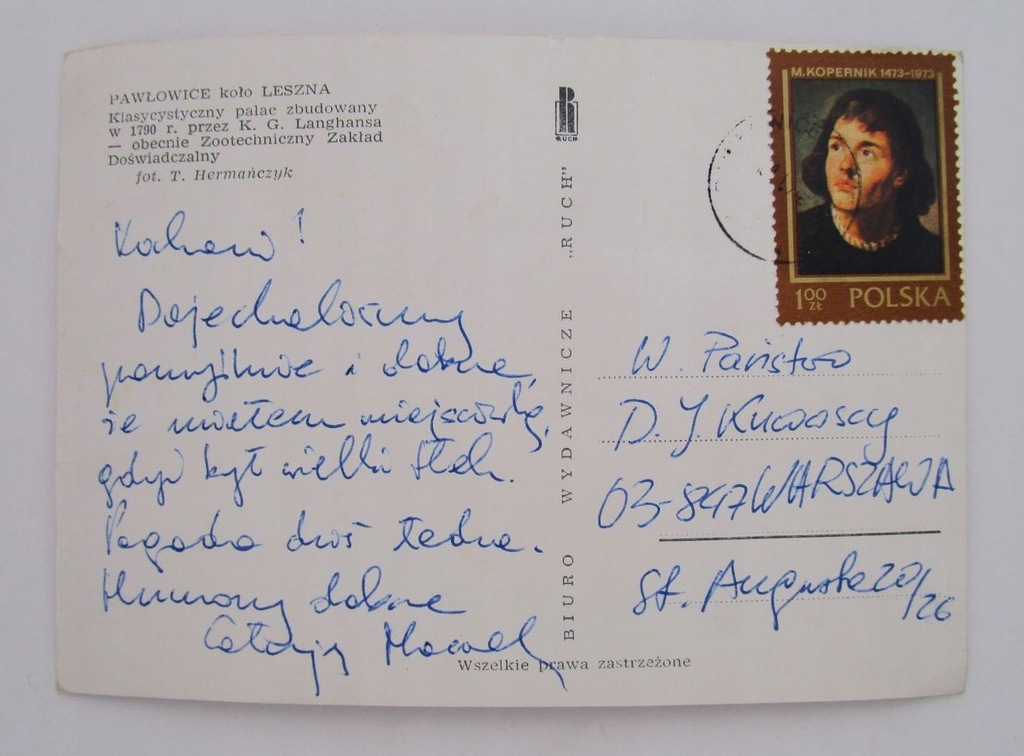 PAWŁOWICE koło LESZNA
Klasycystyczny pałac zbudowany
w 1790 r. przez K. G. Langhansa
— obecnie Zootechniczny Zakład
Doświadczalny
fot. T. Hermańczyk
Kochani!
Dojechaliśmy
pomyślnie i dobrze,
że miałem miejscówkę,
gdyż był wielki tłok.
Pogoda dziś ładna.
Humory dobre
Całuję
RUCH
BIURO WYDAWNICZE „RUCH"
Wszelkie prawa zastrzeżone
M. KOPERNIK 1473-1973
1 00 ZŁ POLSKA
W. Państwo
D. J.
03-847 WARSZAWA
20/26